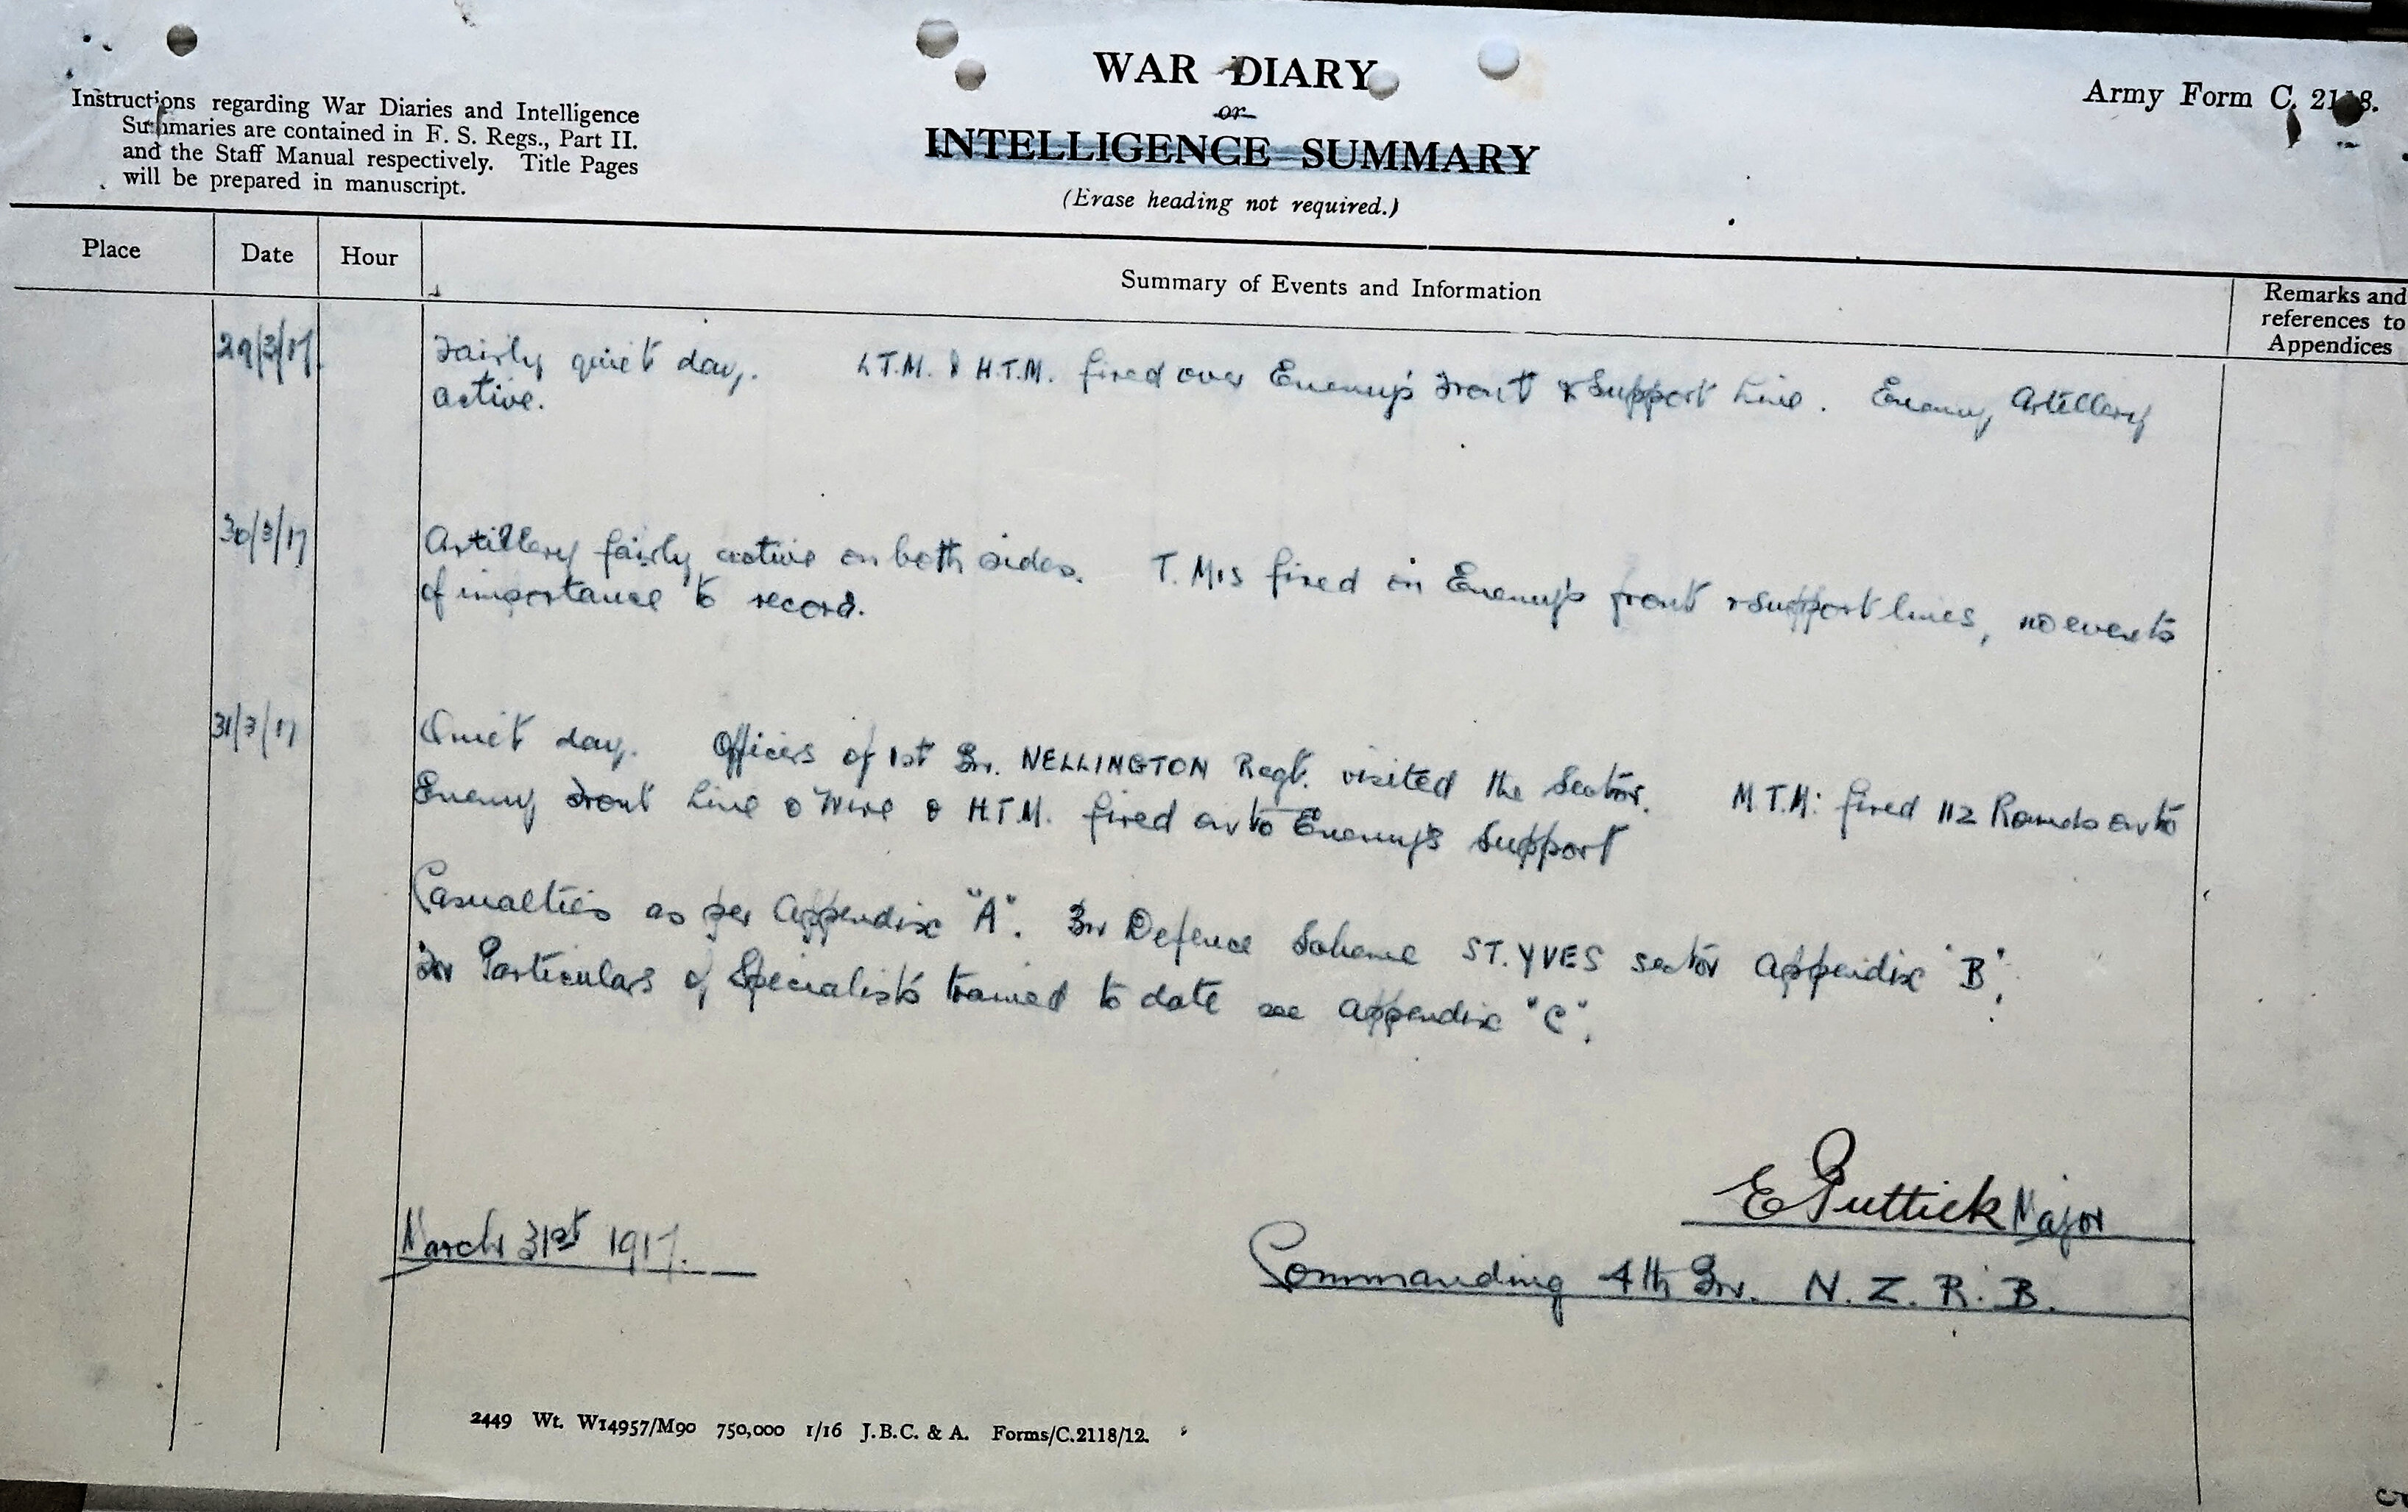 WAR DIARY
or
INTELLIGENCE SUMMARY
(Erase heading not required.)
Army Form C. 2118.
Instructions regarding War Diaries and Intelligence
Summaries are contained in F. S. Regs., Part II.
and the Staff Manual respectively. Title Pages
will be prepared in manuscript.
Place Date Hour Summary of Events and Information Remarks and
references to
Appendices
29/3/17. Fairly quiet day. L.T.M. & H.T.M. fired over Enemy's Front & Support Line. Enemy Artillery
active.
30/3/17 Artillery fairly active on both sides. T.M's fired on Enemy's front & support lines, no events
of importance to record.
31/3/17 Quiet day. Officers of 1st Bn. WELLINGTON Regt. visited the Sector. M.T.M: fired 112 Rounds on to
Enemy Front Line & Wire & H.T.M. fired on to Enemy's Support
Casualties as per Appendix "A". For Defence Scheme ST. YVES sector Appendix "B".
For Particulars of Specialists trained to date see appendix "C".
E Puttick Major
March 31st 1917. Commanding 4th Bn. N. Z. R. B.
2449 Wt. W14957/M90 750,000 1/16 J.B.C. & A. Forms/C.2118/12.